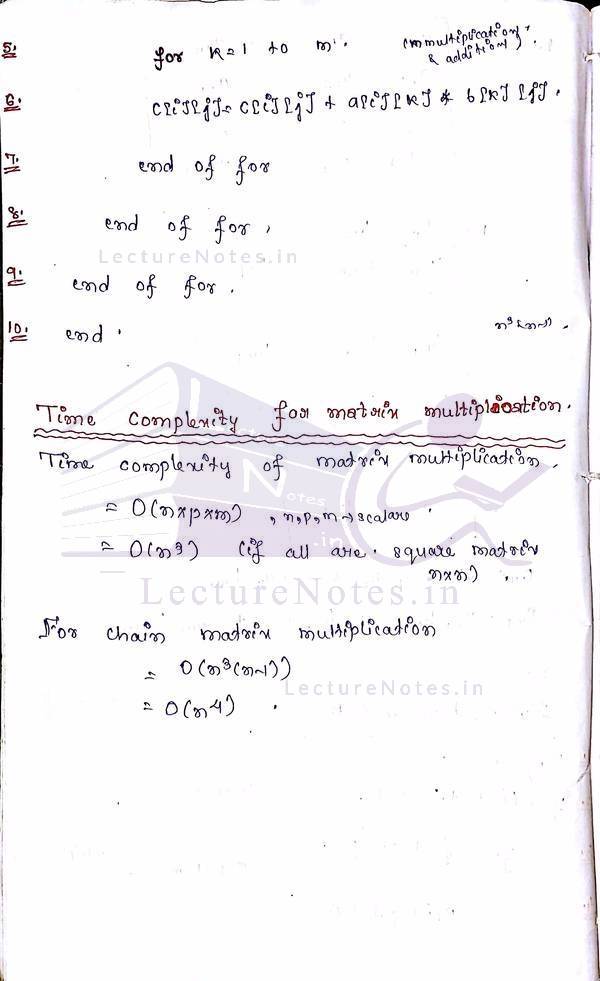 5. for k=1 to m. (m multiplication & addition).
6. c[i][j]= c[i][j] + a[i][k] * b[k] [j].
7. end of for
8. end of for.
LectureNotes.in
9. end of for.
10. end. n³(n-1).
Time complexity for matrix multiplication.
Time complexity of matrix multiplication.
= O(n×p×m) , n,p,m → scalars
= O(n³) (if all are square matrix
n×n)
LectureNotes.in
For chain matrix multiplication
= O(n³(n-1))
LectureNotes.in
= O(n⁴).